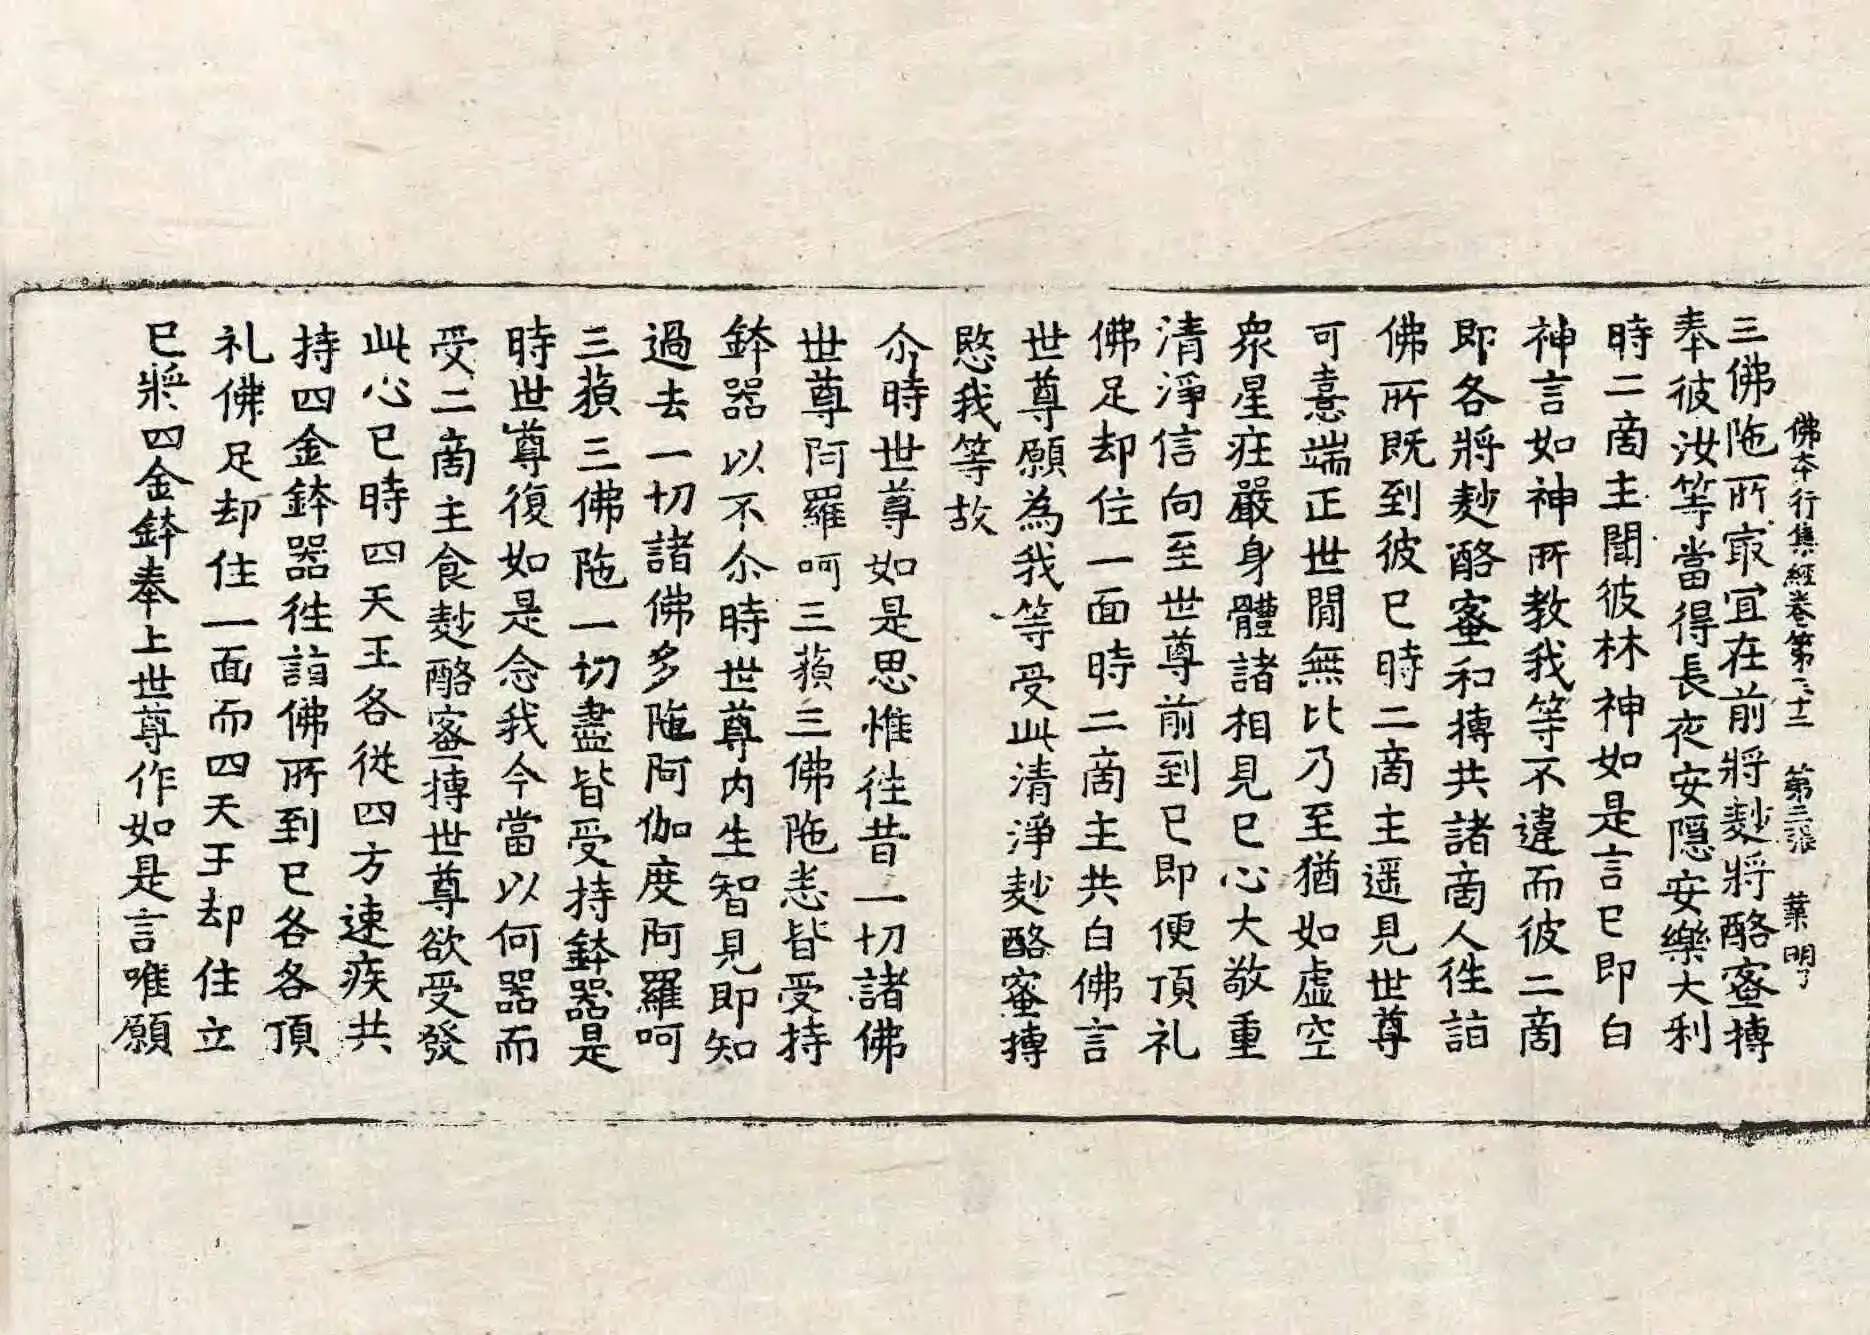 佛本行集經卷第三十二 第三張 葉明了
三佛陁所㝡冝在前將麨將酪蜜摶
奉彼汝等當得長夜安隱安樂大利
時二啇主聞彼林神如是言已即白
神言如神所教我等不違而彼二啇
即各將麨酪蜜和摶共諸啇人徃詣
佛所既到彼已時二啇主遥見世尊
可憙端正世閒無比乃至猶如虚空
衆星庄嚴身體諸相見已心大敬重
清淨信向至世尊前到已即便頂礼
佛足却住一面時二啇主共白佛言
世尊願為我等受此清淨麨酪蜜摶
愍我等故
尒時世尊如是思惟徃昔一切諸佛
世尊阿羅呵三藐三佛陁悉皆受持
鉢器以不尒時世尊内生智見即知
過去一切諸佛多陁阿伽度阿羅呵
三藐三佛陁一切盡皆受持鉢器是
時世尊復如是念我今當以何器而
受二啇主食麨酪蜜摶世尊欲受發
此心已時四天王各從四方速疾共
持四金鉢器徃詣佛所到已各各頂
礼佛足却住一面而四天王却住立
已將四金鉢奉上世尊作如是言唯願